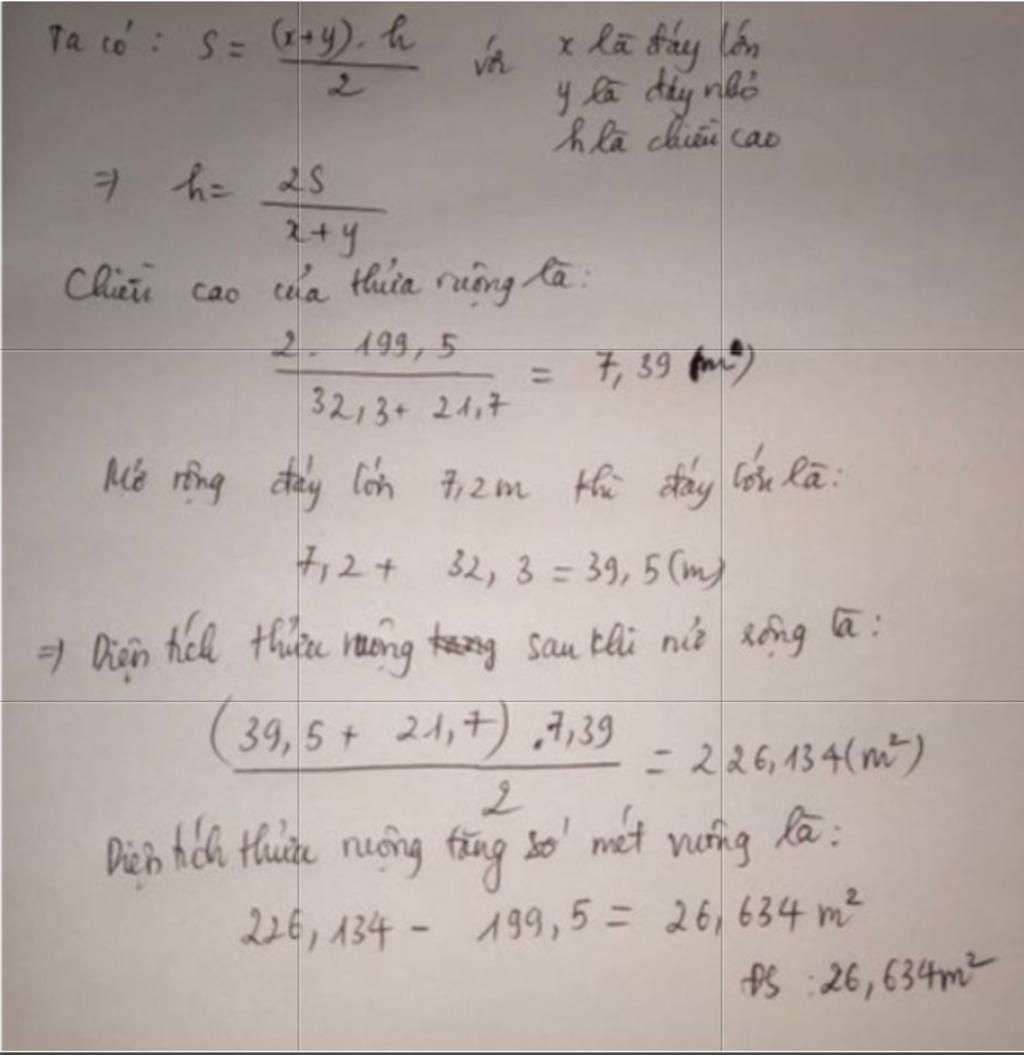 Ta có : S = (x+y). h / 2 với x là đáy lớn
y là đáy nhỏ
h là chiều cao
=> h = 2S / x+y
Chiều cao của thửa ruộng là:
2. 199,5 / 32,3+ 21,7 = 7,39 (m)
Mở rộng đáy lớn 7,2m thì đáy lớn là:
7,2 + 32,3 = 39,5(m)
=> Diện tích thửa ruộng sau khi mở rộng là :
(39,5 + 21,7) .7,39 / 2 = 226,134(m²)
Diện tích thửa ruộng tăng số mét vuông là :
226,134 - 199,5 = 26,634 m²
ĐS : 26,634m²